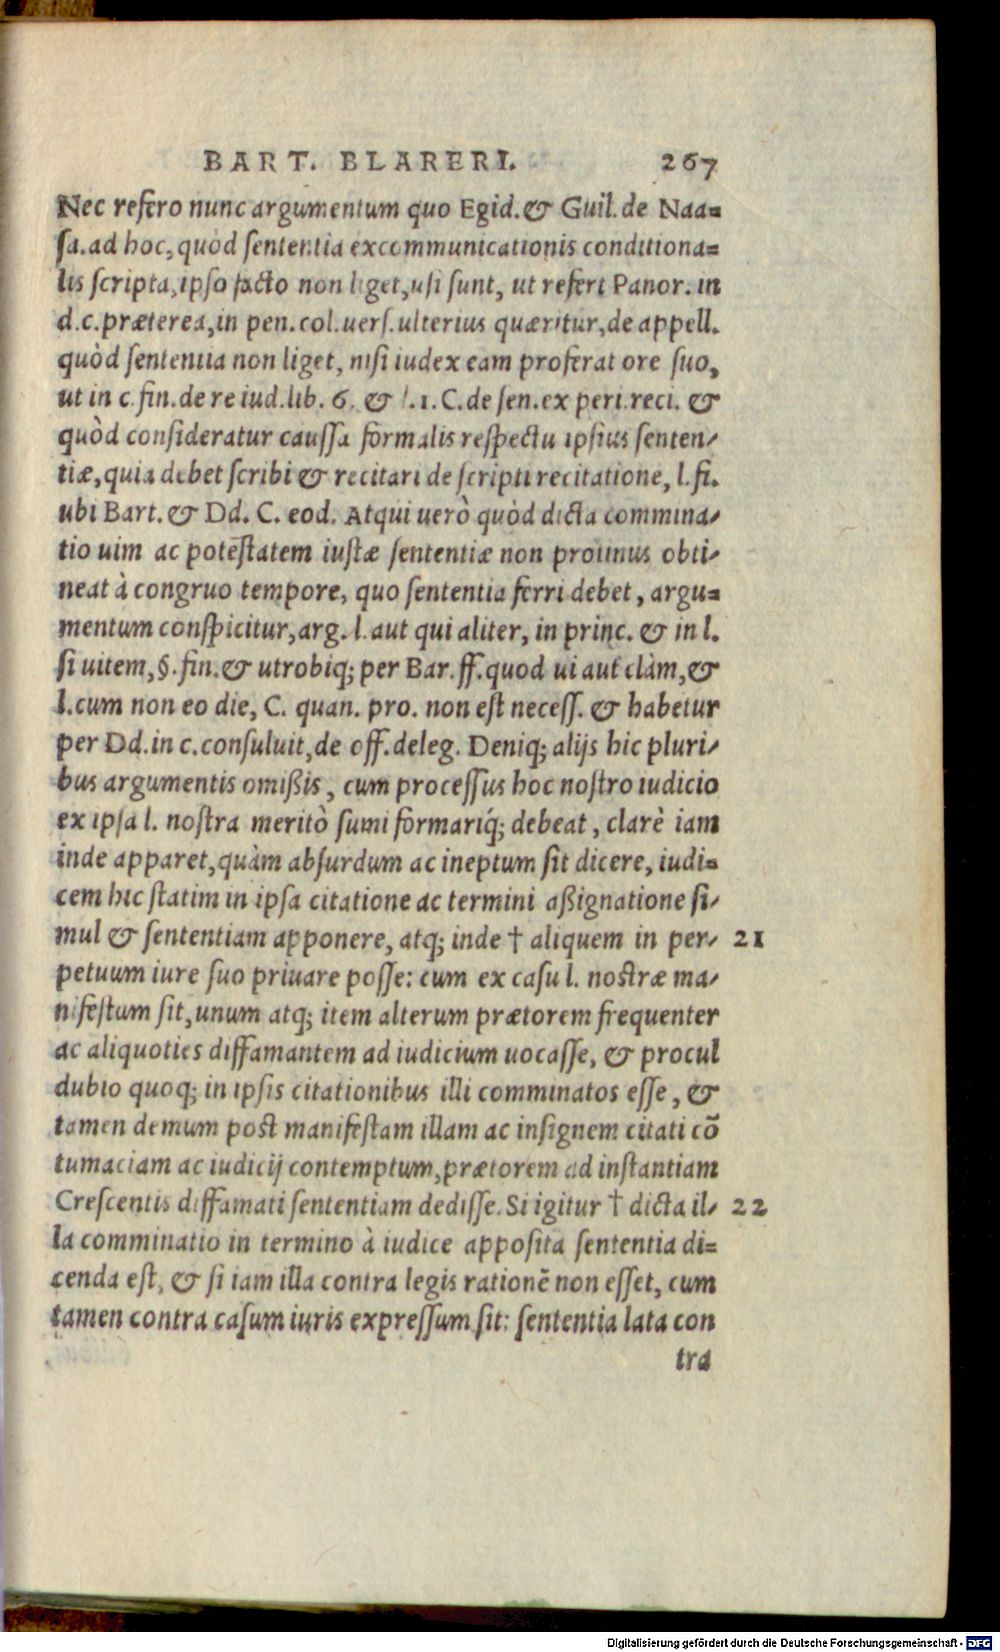 BART. BLARERI. 267
Nec refero nunc argumentum quo Egid. & Guil. de Naa=
ſa. ad hoc, quòd ſententia excommunicationis conditiona=
lis ſcripta, ipſo facto non liget, uſi ſunt, ut refert Panor. in
d. c. præterea, in pen. col. uerſ. ulterius quæritur, de appell.
quòd ſententia non liget, niſi iudex eam proferat ore ſuo,
ut in c. fin. de re iud. lib. 6. & l. 1. C. de ſen. ex peri. reci. &
quòd conſideratur cauſſa formalis reſpectu ipſius ſenten/
tiæ, quia debet ſcribi & recitari de ſcripti recitatione, l. fi.
ubi Bart. & Dd. C. eod. Atqui uerò quòd dicta commina/
tio uim ac poteſtatem iuſtæ ſententiæ non protinus obti/
neat à congruo tempore, quo ſententia ferri debet, argu=
mentum conſpicitur, arg. l. aut qui aliter, in princ. & in l.
ſi uitem, §. fin. & utrobiq; per Bar. ff. quod ui aut clàm, &
l. cum non eo die, C. quan. pro. non eſt neceſſ. & habetur
per Dd. in c. conſuluit, de off. deleg. Deniq; alijs hic pluri/
bus argumentis omißis, cum proceſſus hoc noſtro iudicio
ex ipſa l. noſtra meritò ſumi formariq́; debeat, clarè iam
inde apparet, quàm abſurdum ac ineptum ſit dicere, iudi=
cem hic ſtatim in ipſa citatione ac termini aßignatione ſi/
mul & ſententiam apponere, atq; inde † aliquem in per/ 21
petuum iure ſuo priuare poſſe: cum ex caſu l. noſtræ ma/
nifeſtum ſit, unum atq; item alterum prætorem frequenter
ac aliquoties diffamantem ad iudicium uocaſſe, & procul
dubio quoq; in ipſis citationibus illi comminatos eſſe, &
tamen demum poſt manifeſtam illam ac inſignem citati cō
tumaciam ac iudicij contemptum, prætorem ad inſtantiam
Creſcentis diffamati ſententiam dediſſe. Si igitur † dicta il/ 22
la comminatio in termino à iudice appoſita ſententia di=
cenda eſt, & ſi iam illa contra legis rationē non eſſet, cum
tamen contra caſum iuris expreſſum ſit: ſententia lata con
tra
Digitalisierung gefördert durch die Deutsche Forschungsgemeinschaft - DFG